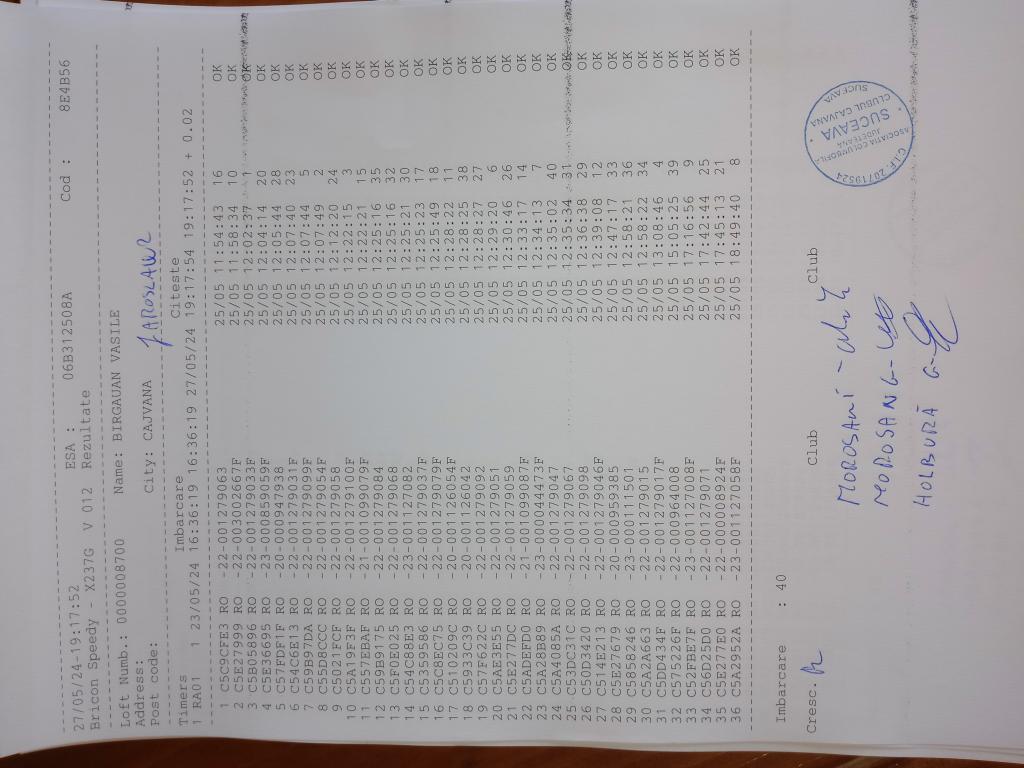 27/05/24-19:17:52 ESA : 06B312508A Cod : 8E4B56
Bricon Speedy - X237G V 012 Rezultate
Loft Numb.: 0000008700 Name: BIRGAUAN VASILE
Address:
Post code: City: CAJVANA JAROSLAW
Timers Imbarcare Citeste
1 RA01 1 23/05/24 16:36:19 16:36:19 27/05/24 19:17:54 19:17:52 + 0.02
1 C5C9CFE3 RO -22-001279063 25/05 11:54:43 16 OK
2 C5E27999 RO -22-003002667F 25/05 11:58:34 10 OK
3 C5B05896 RO -22-001279033F 25/05 12:02:37 1 OK
4 C5E36695 RO -23-000859059F 25/05 12:04:14 20 OK
5 C57FDF1F RO -20-000947938 25/05 12:05:44 28 OK
6 C54CCE13 RO -22-001279031F 25/05 12:07:40 23 OK
7 C59B97DA RO -22-001279099F 25/05 12:07:44 5 OK
8 C55D8CCC RO -22-001279054F 25/05 12:07:49 2 OK
9 C5021FCF RO -22-001279058 25/05 12:12:20 24 OK
10 C5A19F3F RO -22-001279100F 25/05 12:22:15 3 OK
11 C557EBAF RO -21-001099079F 25/05 12:22:21 15 OK
12 C59B9175 RO -22-001279084 25/05 12:25:16 35 OK
13 C5F0E025 RO -22-001279068 25/05 12:25:16 32 OK
14 C54C88E3 RO -23-001127082 25/05 12:25:21 30 OK
15 C5359586 RO -22-001279037F 25/05 12:25:23 17 OK
16 C5C8EC75 RO -22-001279079F 25/05 12:25:49 18 OK
17 C510209C RO -20-001126054F 25/05 12:28:22 11 OK
18 C5933C39 RO -20-001126042 25/05 12:28:25 38 OK
19 C57F622C RO -22-001279092 25/05 12:28:27 27 OK
20 C5AE3E55 RO -22-001279051 25/05 12:29:20 6 OK
21 C5E277DC RO -22-001279059 25/05 12:30:46 26 OK
22 C5ADEFD0 RO -21-001099087F 25/05 12:33:17 14 OK
23 C5A28B89 RO -23-000044473F 25/05 12:34:13 7 OK
24 C5A4085A RO -22-001279047 25/05 12:35:02 40 OK
25 C53DC31C RO -22-001279067 25/05 12:35:34 31 OK
26 C50D3420 RO -22-001279098 25/05 12:36:38 29 OK
27 C514E213 RO -22-001279046F 25/05 12:39:08 12 OK
28 C5E27679 RO -20-000959385 25/05 12:47:17 33 OK
29 C5858246 RO -23-000111501 25/05 12:58:21 36 OK
30 C5A2A663 RO -22-001279015 25/05 12:58:22 34 OK
31 C5DD434F RO -22-001279017F 25/05 13:08:46 4 OK
32 C575226F RO -22-000964008 25/05 15:05:25 39 OK
33 C52FBE7F RO -23-001127008F 25/05 17:16:56 9 OK
34 C56D25D0 RO -22-001279071 25/05 17:42:44 25 OK
35 C5E277E0 RO -22-000008924F 25/05 17:45:13 21 OK
36 C5A2952A RO -23-001127058F 25/05 18:49:40 8 OK
Imbarcare : 40
Cresc. Club Club
MOROSANI
MOROSAN G-
HOLBURĂ G-
ASOCIATIA COLUMBOFILA
JUDETEANA
SUCEAVA
CLUBUL CAJVANA
SUCEAVA
C.I.F. 20719524